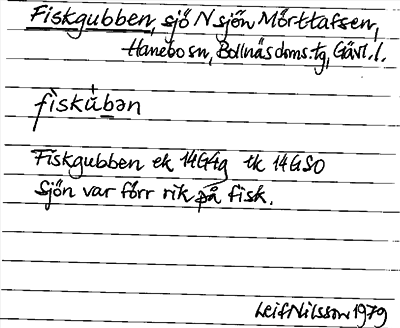 Fiskgubben, sjö N sjön Mörttafsen,
Hanebo sn, Bollnäs doms. tg, Gävl. l.
fiskùbən
Fiskgubben ek 14G4g tk 14GSO
Sjön var förr rik på fisk.
Leif Nilsson 1979